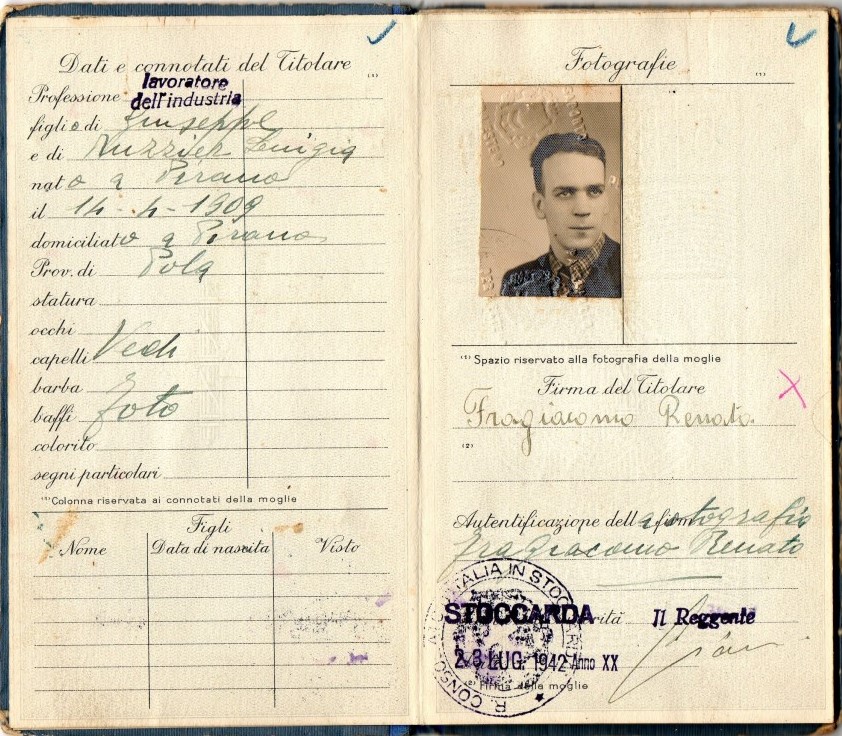 Dati e connotati del Titolare
(1)
Professione lavoratore
dell'industria
figlio di Giuseppe
e di Ruzzier Luigia
nato a Pirano
il 14-4-1909
domiciliato a Pirano
Prov. di Pola
statura
occhi
capelli Vedi
barba
baffi foto
colorito
segni particolari
(1) Colonna riservata ai connotati della moglie
Figli
Nome Data di nascita Visto
Fotografie
(1)
(1) Spazio riservato alla fotografia della moglie
Firma del Titolare
Fragiacomo Renato
(2)
Autentificazione della fotografia
Fragiacomo Renato
R. CONSO ITALIA IN STOCCARDA
STOCCARDA Il Reggente
23 LUG. 1942 Anno XX
(2) Firma della moglie